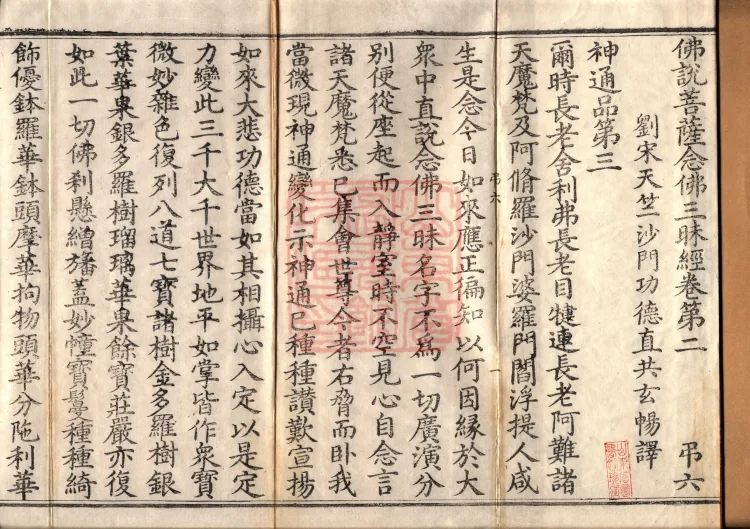 佛說菩薩念佛三昧經卷第二 弔六
劉宋天竺沙門功德直共玄暢譯
神通品第三
爾時長老舍利弗長老目犍連長老阿難諸
天魔梵及阿脩羅沙門婆羅門閻浮提人咸
生是念今日如來應正徧知以何因緣於大
弔六 一
衆中直說念佛三昧名字不爲一切廣演分
別便從座起而入靜室時不空見心自念言
諸天魔梵悉已集會世尊今者右脅而卧我
當微現神通變化示神通已種種讚歎宣揚
如來大悲功德當如其相攝心入定以是定
力變此三千大千世界地平如掌皆作衆寶
微妙雜色復列八道七寶諸樹金多羅樹銀
葉華果銀多羅樹瑠璃華果餘寶莊嚴亦復
如此一切佛刹懸繒旛蓋妙幢寶鬘種種綺
飾優鉢羅華鉢頭摩華拘物頭華分陁利華